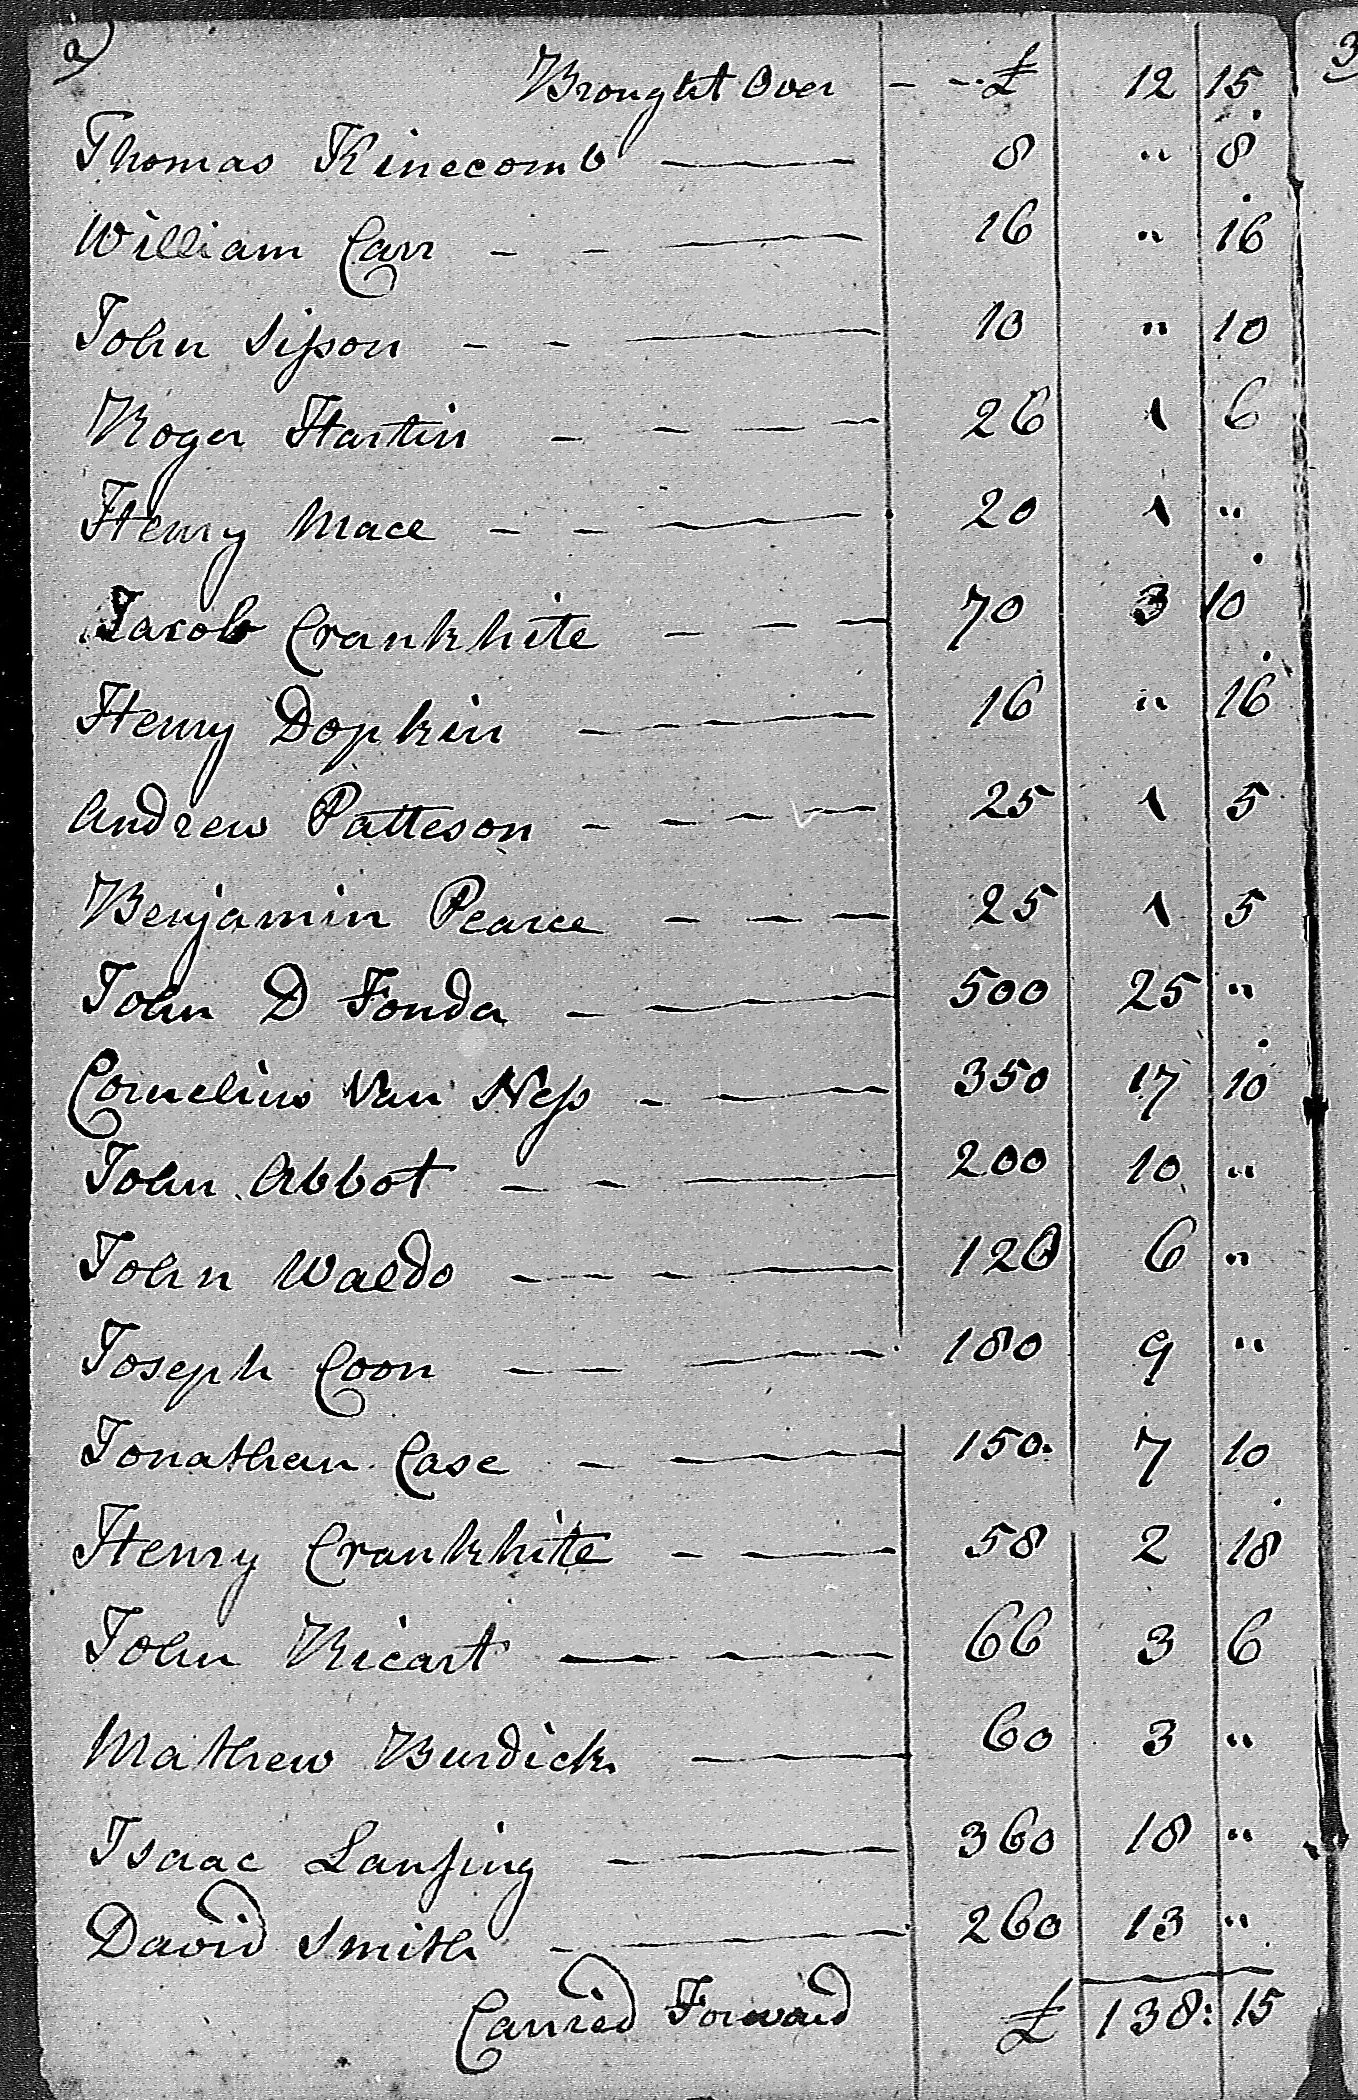 2)
Brought Over - - £ 12 15
Thomas Kinecomb 8 " 8
William Carr - - 16 " 16
John Sisson - - 10 " 10
Roger Hartin - - - - 26 1 6
Henry Mace - - 20 1 "
Jacob Crankhite - - - 70 3 10
Henry Dopkin - 16 " 16
Andrew Patteson - - - 25 1 5
Benjamin Pearce - - - 25 1 5
John D Fonda - 500 25 "
Cornelius Van Ness - 350 17 10
John Abbot - - 200 10 "
John Waldo - - - 120 6 "
Joseph Coon - - 180 9 "
Jonathan Case - 150 7 10
Henry Crankhite - 58 2 18
John Ricart 66 3 6
Mathew Burdick 60 3 "
Isaac Lansing 360 18 "
David Smith - 260 13 "
Carried Forward £ 138: 15
3